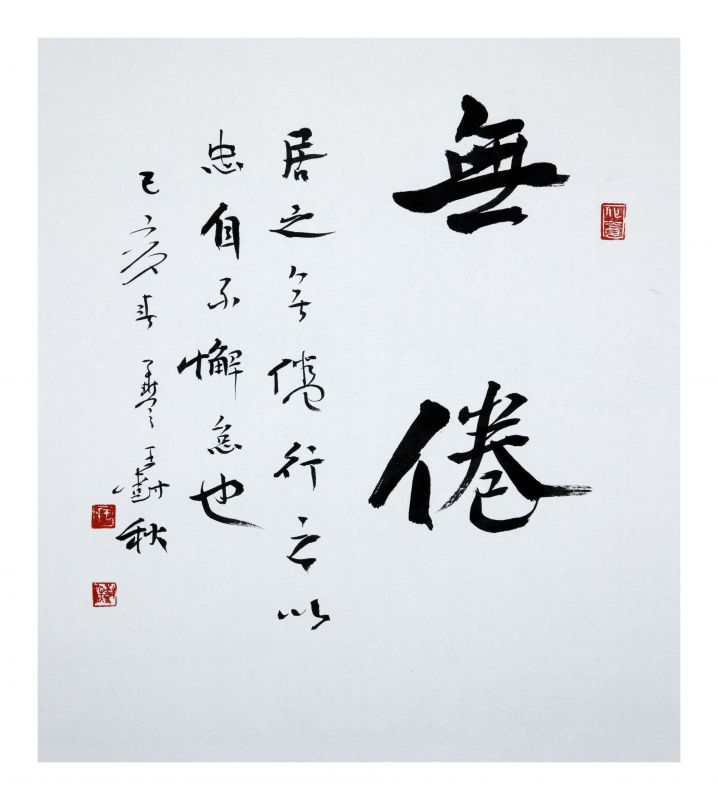 無倦
居之無倦行之以
忠自不懈怠也
己亥 王 秋